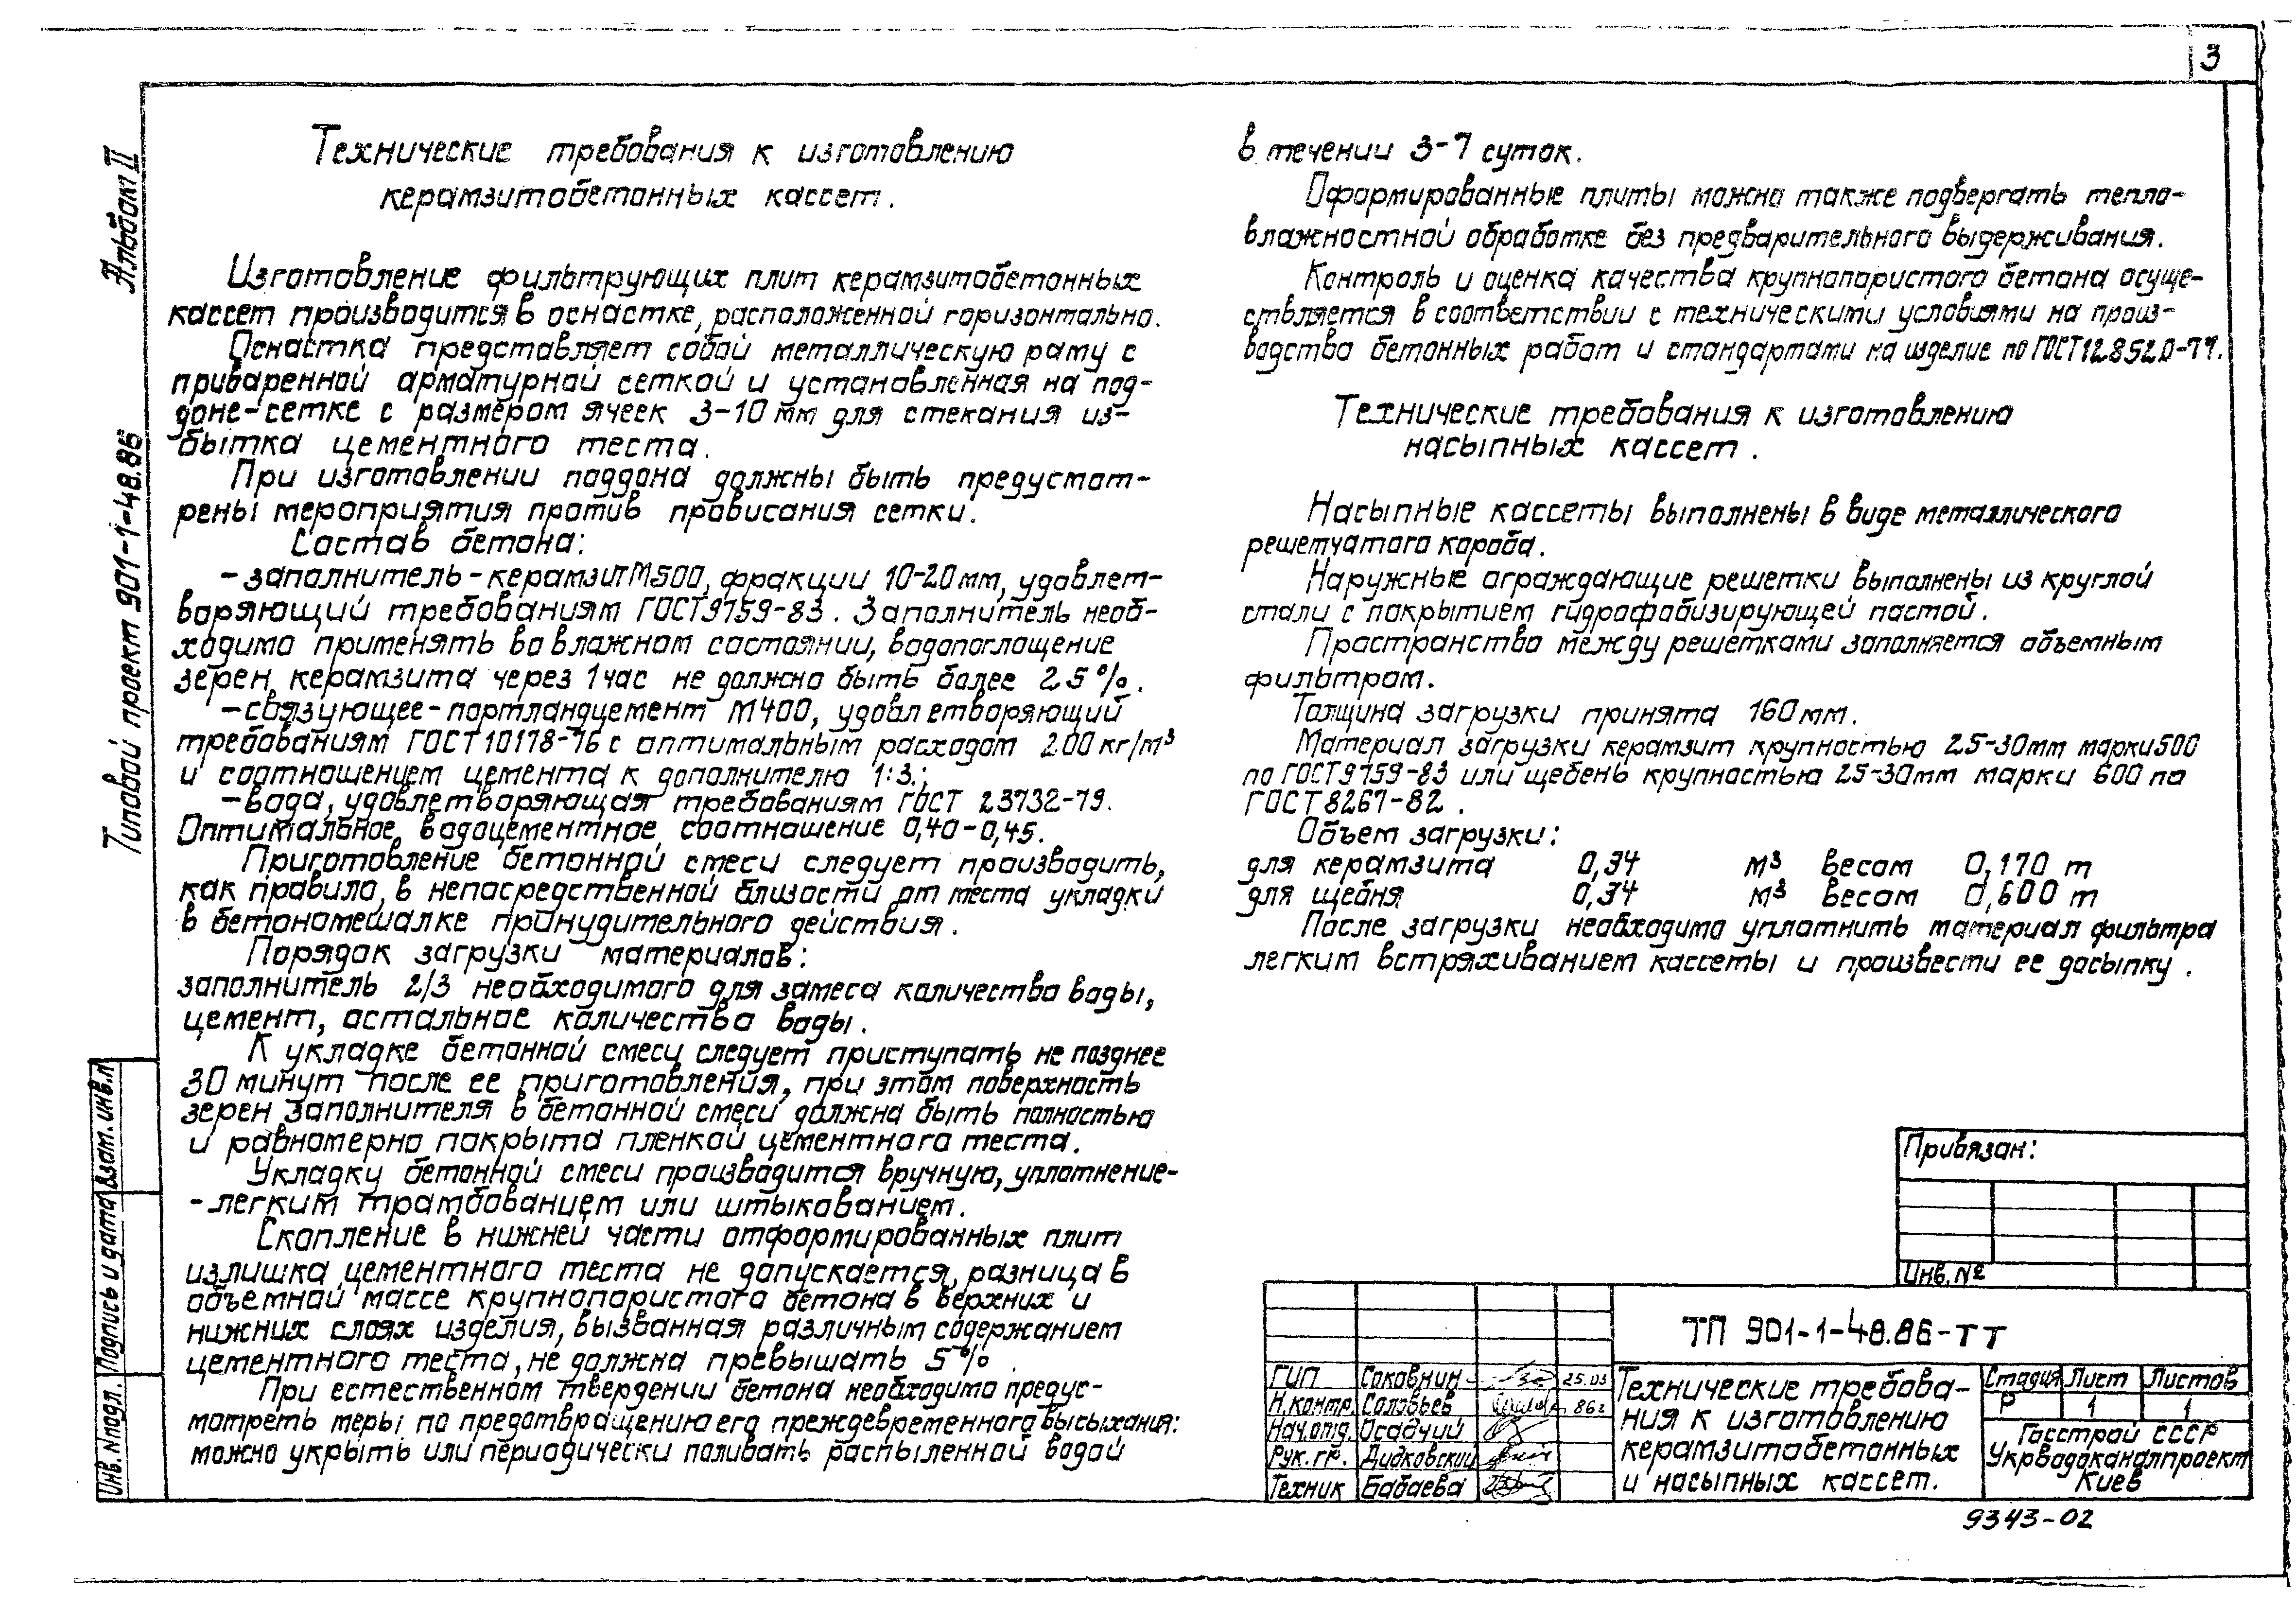 3
Альбом II
Типовой проект 901-1-48.86
Технические требования к изготовлению
керамзитобетонных кассет.
Изготовление фильтрующих плит керамзитобетонных
кассет производится в оснастке, расположенной горизонтально.
Оснастка представляет собой металлическую раму с
приваренной арматурной сеткой и установленная на под-
доне-сетке с размером ячеек 3-10 мм для стекания из-
бытка цементного теста.
При изготовлении поддона должны быть предусмот-
рены мероприятия против провисания сетки.
Состав бетона:
- заполнитель - керамзит М500, фракции 10-20 мм, удовлет-
воряющий требованиям ГОСТ 9759-83. Заполнитель необ-
ходимо применять во влажном состоянии, водопоглощение
зерен керамзита через 1 час не должно быть более 25%.
- связующее - портландцемент М400, удовлетворяющий
требованиям ГОСТ 10178-76 с оптимальным расходом 200 кг/м³
и соотношением цемента к дополнителю 1:3.;
- вода, удовлетворяющая требованиям ГОСТ 23732-79.
Оптимальное водоцементное соотношение 0,40-0,45.
Приготовление бетонной смеси следует производить,
как правило, в непосредственной близости от места укладки
в бетономешалке принудительного действия.
Порядок загрузки материалов:
заполнитель 2/3 необходимого для замеса количества воды,
цемент, остальное количество воды.
К укладке бетонной смеси следует приступать не позднее
30 минут после ее приготовления, при этом поверхность
зерен заполнителя в бетонной смеси должна быть полностью
и равномерно покрыта пленкой цементного теста.
Укладку бетонной смеси производится вручную, уплотнение-
- легким трамбованием или штыкованием.
Скопление в нижней части отформированных плит
излишка цементного теста не допускается, разница в
объемной массе крупнопористого бетона в верхних и
нижних слоях изделия, вызванная различным содержанием
цементного теста, не должна превышать 5%.
При естественном твердении бетона необходимо предус-
мотреть меры по предотвращению его преждевременного высыхания:
можно укрыть или периодически поливать распыленной водой
в течении 3-7 суток.
Оформированные плиты можно также подвергать тепло-
влажностной обработке без предварительного выдерживания.
Контроль и оценка качества крупнопористого бетона осуще-
ствляется в соответствии с техническими условиями на произ-
водство бетонных работ и стандартами на изделие по ГОСТ 12.852.0-77.
Технические требования к изготовлению
насыпных кассет.
Насыпные кассеты выполнены в виде металлического
решетчатого короба.
Наружные ограждающие решетки выполнены из круглой
стали с покрытием гидрофобизирующей пастой.
Пространство между решетками заполняется объемным
фильтром.
Толщина загрузки принята 160 мм.
Материал загрузки керамзит крупностью 25-30мм марки 500
по ГОСТ 9759-83 или щебень крупностью 25-30мм марки 600 по
ГОСТ 8267-82.
Объем загрузки:
для керамзита 0,34 м³ весом 0,170 т
для щебня 0,34 м³ весом 0,600 т
После загрузки необходимо уплотнить материал фильтра
легким встряхиванием кассеты и произвести ее досыпку.
Взам. инв. №
Подпись и дата
Инв. № подл.
Привязан:
Инв. №
ТП 901-1-48.86-ТТ
ГИП Соковнин 25.03
Н.контр. Соловьев 86г
Нач.отд. Осадчий
Рук.гр. Дидковский
Техник Бабаева
Технические требова-
ния к изготовлению
керамзитобетонных
и насыпных кассет.
Стадия Лист Листов
Р 1 1
Госстрой СССР
Укрводоканалпроект
Киев
9343-02